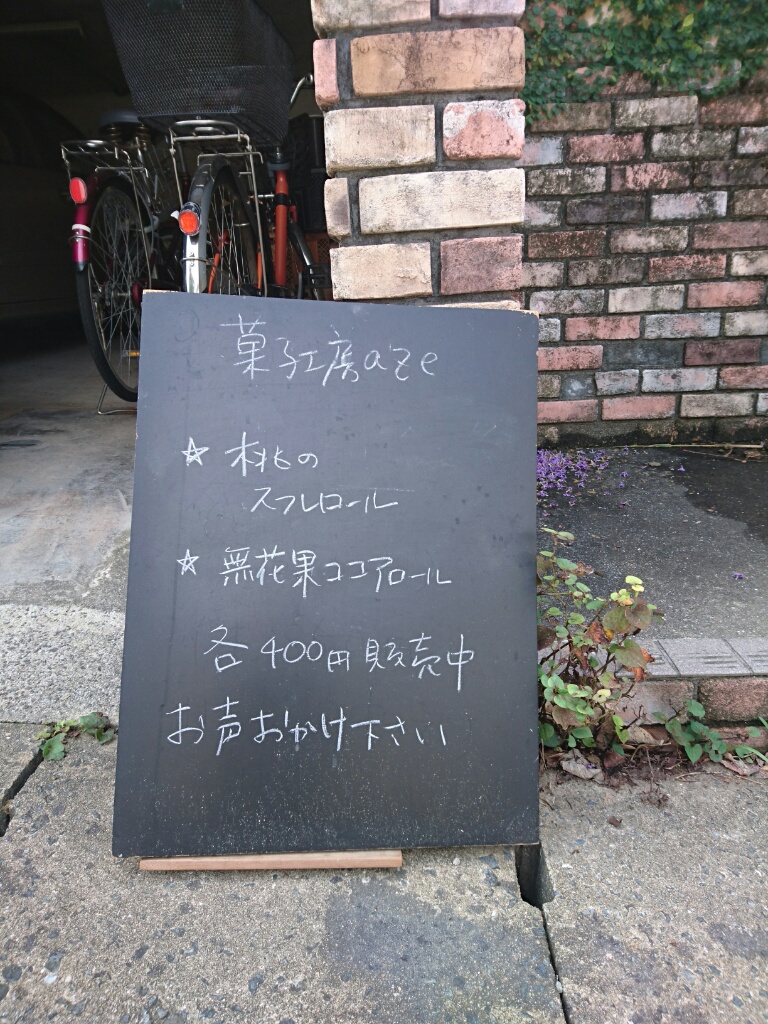 菓子工房aze
☆ 桃の
スフレロール
☆ 無花果ココアロール
各400円販売中
お声おかけ下さい